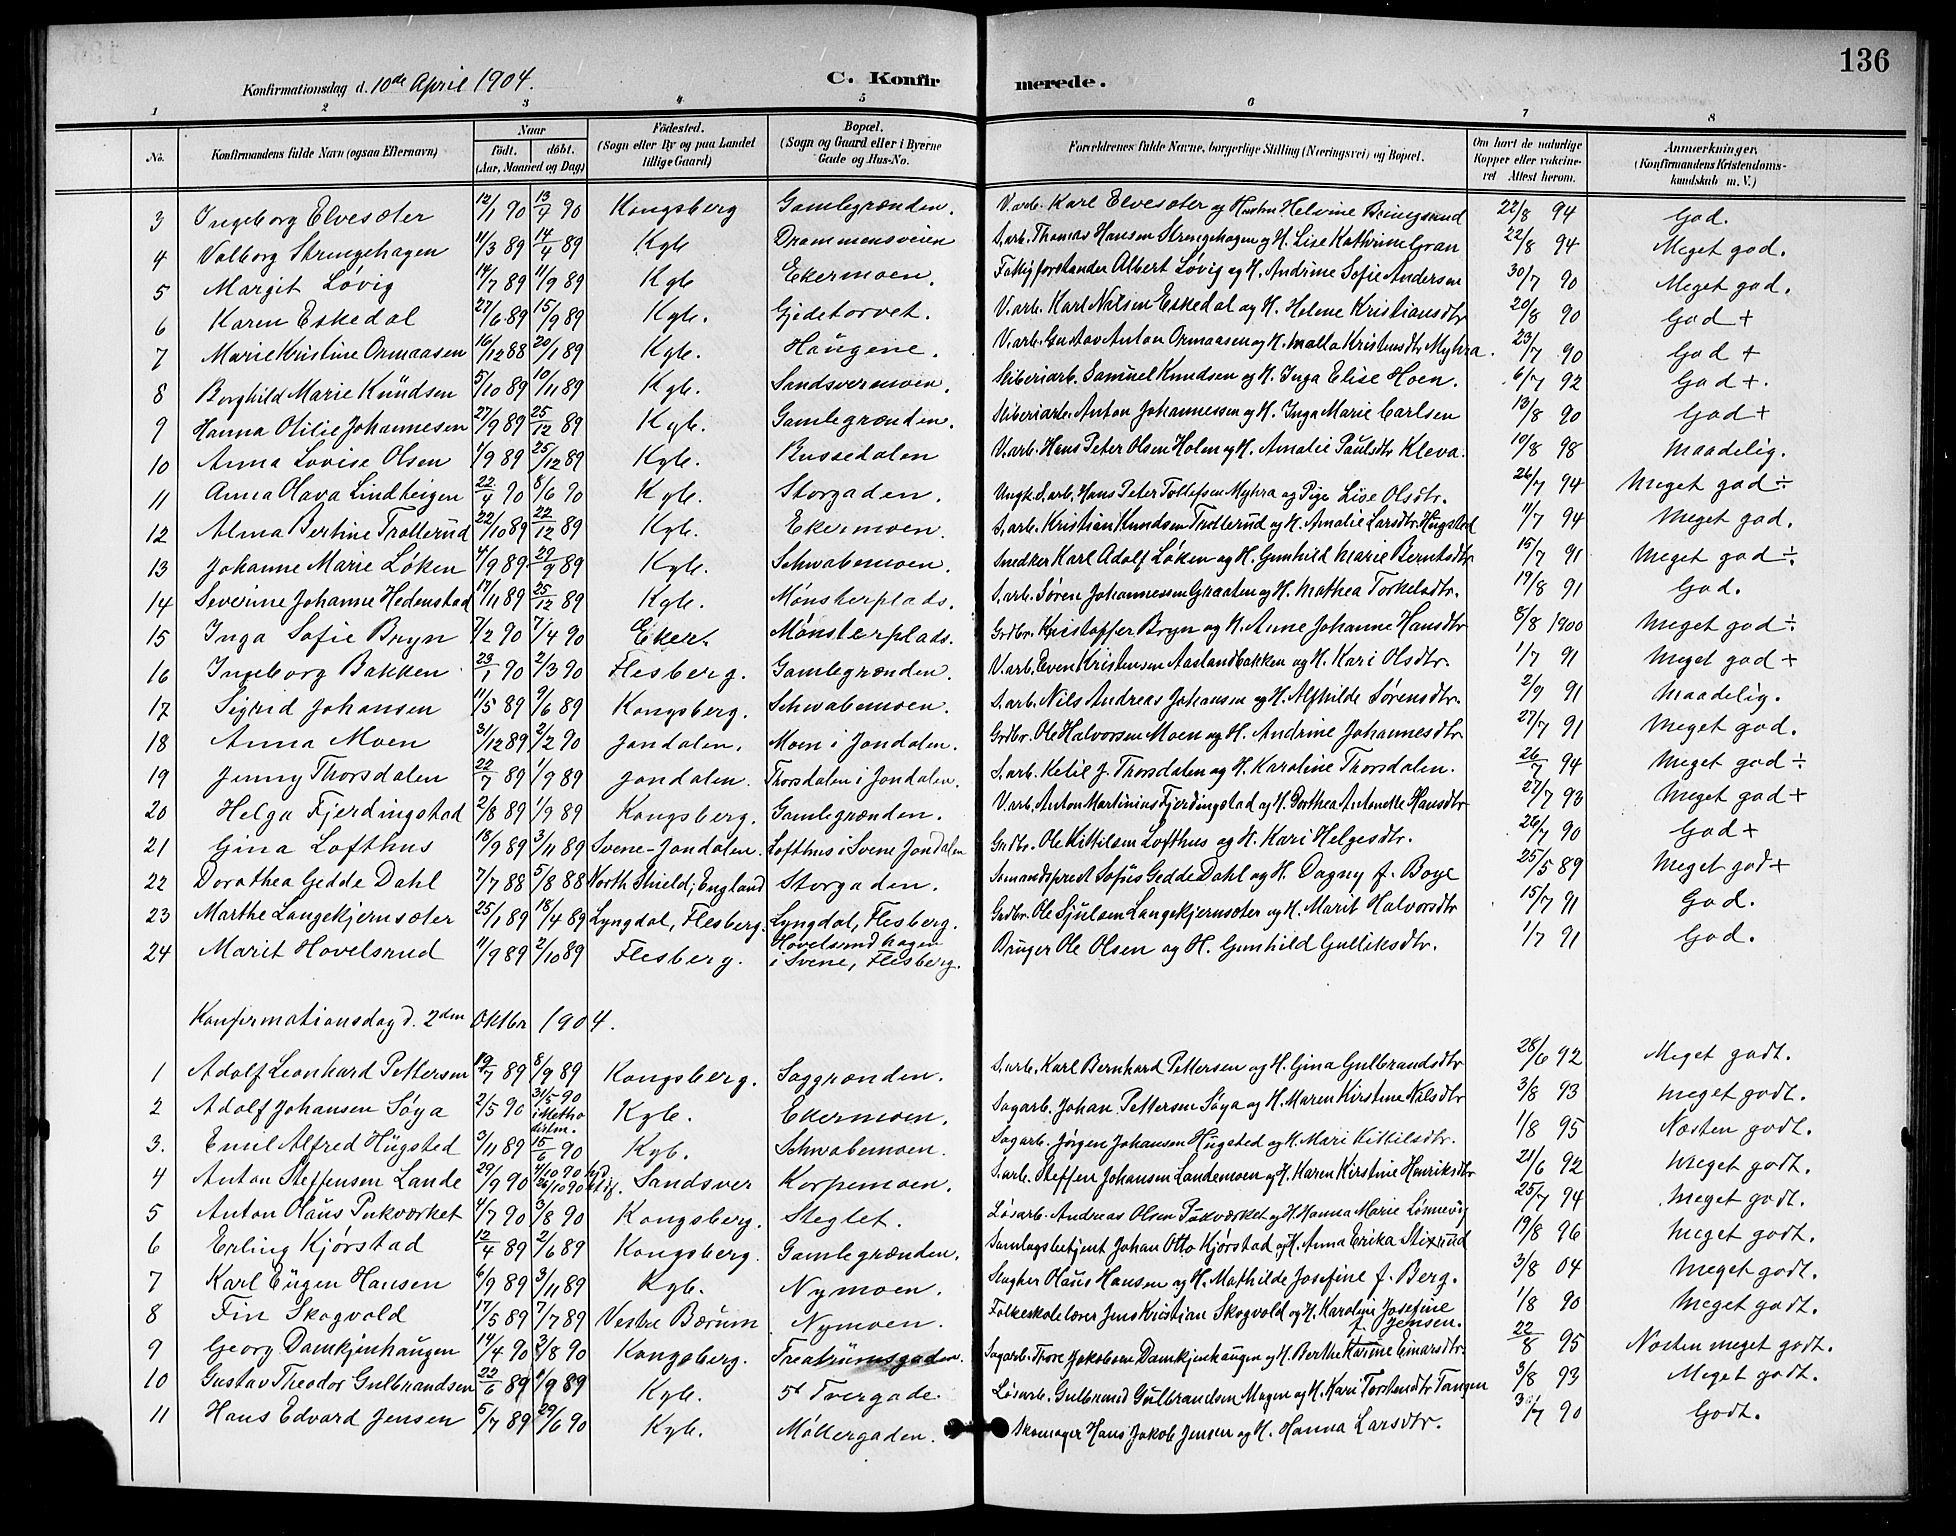 136
Konfirmationsdag d. 10de April 1904.
C. Konfirmerede.
1 2 3 4 5 6 7 8
No. Konfirmandens fulde Navn (ogsaa Efternavn) Naar født. døbt. (Aar, Maaned og Dag) Fødested. (Sogn eller By og paa Landet tillige Gaard) Bopæl. (Sogn og Gaard eller i Byerne Gade og Hus-No. Forældrenes fulde Navne, borgerlige Stilling (Næringsvei) og Bopæl. Om havt de naturlige Kopper eller vakcineret Attest herom. Anmærkninger. (Konfirmandens Kristendomskundskab m. V.)
3 Ingeborg Elvesæter 12/1 90 13/4 90 Kongsberg Gamlegrænden. V.arb. Karl Elvesæter og Hustru Helvine Bringsrud 22/8 94 God.
4 Valborg Strengehagen 11/3 89 14/4 89 Kgb Drammensveien S.arb. Thomas Hansen Strengehagen og H. Lise Kathrine Gran 22/8 94 Meget god.
5 Margit Løvig 14/7 89 11/9 89 Kgb Ekermoen. Fattigforstander Albert Løvig og H. Andrine Sofie Andersen 30/7 90 Meget god.
6 Karen Eskedal 27/6 89 15/9 89 Kgb. Gjedetorvet. V.arb. Karl Nilsen Eskedal og H. Helene Kristiansdtr 20/8 90 God +
7 Marie Kristine Ormaasen 16/12 88 20/1 89 Kgb. Haugene. V.arb. Gustav Anton Ormaasen og H. Malla Kristensdtr Myhra. 23/7 90 God +
8 Borghild Marie Knudsen 5/10 89 10/11 89 Kgb. Sandsvermoen. Sliberiarb. Samuel Knudsen og H. Inga Elise Hoen. 6/7 92 God +.
9 Hanna Otilie Johannesen 27/9 89 25/12 89 Kgb. Gamlegrænden. Sliberiarb. Anton Johannessen og H. Inga Marie Carlsen 13/8 90 God +
10 Anna Lovise Olsen 1/9 89 25/12 89 Kgb. Russedalen V.arb. Hans Peter Olsen Holen og H. Amalie Paulsdtr Kleva. 10/8 98 Maadelig.
11 Anna Olava Lindteigen 22/4 90 8/6 90 Kgb. Storgaden. Ungk. S.arb. Hans Peter Tollefsen Myhra og Pige Lise Olsdtr. 26/7 94 Meget god ÷
12 Alma Bertine Trollerud 22/10 89 22/12 89 Kgb. Ekermoen. S.arb. Kristian Knudsen Trollerud og H. Amalie Larsdtr. Hugsted 11/7 94 Meget god.
13 Johanne Marie Løken 4/9 89 29/9 89 Kgb. Schwabemoen. Snedker Karl Adolf Løken og H. Gunhild Marie Berntsdtr 15/7 91 Meget god ÷
14 Severine Johanne Hedenstad 17/11 89 25/12 89 Kgb. Mønsterplads. S.arb. Søren Johannessen Graaten og H. Mathea Torkelsdtr. 19/8 91 God.
15 Inga Sofie Bryn 7/2 90 7/4 90 Eker. Mønsterplads. Grdbr. Kristoffer Bryn og H. Anne Johanne Hansdtr 8/8 1900 Meget god ÷
16 Ingeborg Bakken 23/1 90 2/3 90 Flesberg. Gamlegrænden. V.arb. Even Kristensen Aaslandbakken og H. Kari Olsdtr. 1/7 91 Meget god +
17 Sigrid Johansen 11/5 89 9/6 89 Kongsberg. Schwabemoen. S.arb. Nils Andreas Johansen og H. Alfhilde Sørensdtr. 2/9 91 Maadelig.
18 Anna Moen 31/12 89 2/2 90 Jondalen. Moen i Jondalen. Grdbr. Ole Halvorsen Moen og H. Andrine Johannesdtr 27/7 91 Meget god.
19 Jenny Thorsdalen 22/7 89 1/9 89 Jondalen. Thorsdalen i Jondalen. S.arb. Ketil J. Thorsdalen og H. Karoline Thorsdalen. 26/7 94 Meget god ÷
20 Helga Fjerdingstad 2/8 89 1/9 89 Kongsberg. Gamlegrænden. V.arb. Anton Martinius Fjerdingstad og H. Dorthea Antonette Hansdtr 27/7 93 Meget god +
21 Gina Lofthus 13/9 89 3/11 89 Svene-Jondalen. Lofthus i Svene Jondalen Grdbr. Ole Kittilsen Lofthus og H. Kari Helgesdtr. 26/7 90 God +
22 Dorathea Gedde Dahl 7/7 88 5/8 88 North Shield, England Storgaden. Sømandsprest Sofus Gedde Dahl og H. Dagny f. Boye 25/5 89 Meget god +
23 Marthe Langekjernsæter 25/1 89 18/4 89 Lyngdal, Flesberg. Lyngdal, Flesberg. Grdbr. Ole Sjulsen Langekjernsæter og H. Marit Halvorsdtr 15/7 91 God.
24 Marit Hovelsrud 11/9 89 2/10 89 Flesberg. Hovelsrudhagen i Svene, Flesberg. Bruger Ole Olsen og H. Gunhild Gulliksdtr. 1/7 91 God.
Konfirmationsdag d. 2den Oktbr 1904.
1 Adolf Leonhard Pettersen 19/7 89 8/9 89 Kongsberg. Saggrænden. S.arb. Karl Bernhard Pettersen og H. Gina Gulbrandsdtr 28/6 92 Meget godt.
2 Adolf Johansen Søya 2/5 90 31/5 90 i Methodistm. Kgb. Ekermoen. Sagarb. Johan Pettersen Søya og H. Maren Kirstine Nilsdtr 3/8 93 Meget godt.
3. Emil Alfred Hugsted 3/11 89 15/6 90 Kgb. Schwabemoen. Sagarb. Jørgen Johansen Hugsted og H. Mari Kittilsdtr. 1/8 95 Næsten godt.
4 Anton Steffensen Lande 29/9 90 4/10 90 hjd. 26/10 90 stif. Sandsver Korpemoen. S.arb. Steffen Johansen Landemoen og H. Karen Kirstine Henriksdtr 21/6 92 Meget godt.
5 Anton Olaus Pukværket 4/7 90 3/8 90 Kongsberg. Steglet. Løsarb. Andreas Olsen Pukværket og H. Hanna Marie Lønnevig 25/7 94 Meget godt.
6 Erling Kjørstad 12/4 89 2/6 89 Kongsberg. Gamlegrænden. Samlagsbetjent Johan Otto Kjørstad og H. Anna Erika Stixrud 19/8 96 Meget godt.
7 Karl Eugen Hansen 6/9 89 3/11 89 Kgb. Nymoen. Slagter Olaus Hansen og H. Mathilde Josefine f. Berg. 3/8 04 Meget godt.
8 Fin Skogvold 17/5 89 7/7 89 Vestre Bærum Nymoen. Folkeskolelærer Jens Kristian Skogvold og H. Karoline Josefine f. Jensen. 1/8 90 Meget godt.
9 Georg Damkjenhaugen 14/4 90 3/8 90 Kongsberg. Treatrumsgaden. Sagarb. Thore Jakobsen Damkjenhaugen og H. Berthe Karine Einarsdtr. 22/8 95 Næsten meget godt.
10 Gustav Theodor Gulbrandsen 23/6 89 1/9 89 Kgb. 5t Tvergade. Løsarb. Gulbrand Gulbrandsen Mogen og H. Kari Torstendtr Tangen 3/8 93 Meget godt.
11 Hans Edvard Jensen 5/7 89 29/6 90 Kgb. Møllergaden. Skomager Hans Jakob Jensen og H. Hanna Larsdtr. /7 90 Godt.